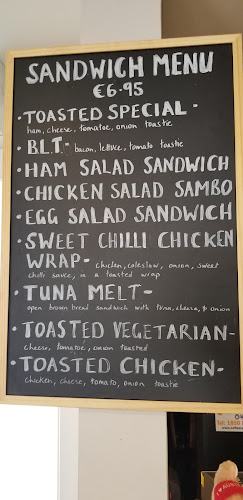 SANDWICH MENU
€6.95
· TOASTED SPECIAL -
ham, cheese, tomatoe, onion toastie
· B.L.T. - bacon, lettuce, tomato toastie
· HAM SALAD SANDWICH
· CHICKEN SALAD SAMBO
· EGG SALAD SANDWICH
· SWEET CHILLI CHICKEN
WRAP - chicken, coleslaw, onion, sweet
chilli sauce, in a toasted wrap
· TUNA MELT -
open brown bread sandwich with tuna, cheese, & onion
· TOASTED VEGETARIAN -
cheese, tomatoe, onion toasted
· TOASTED CHICKEN -
chicken, cheese, tomato, onion toastie